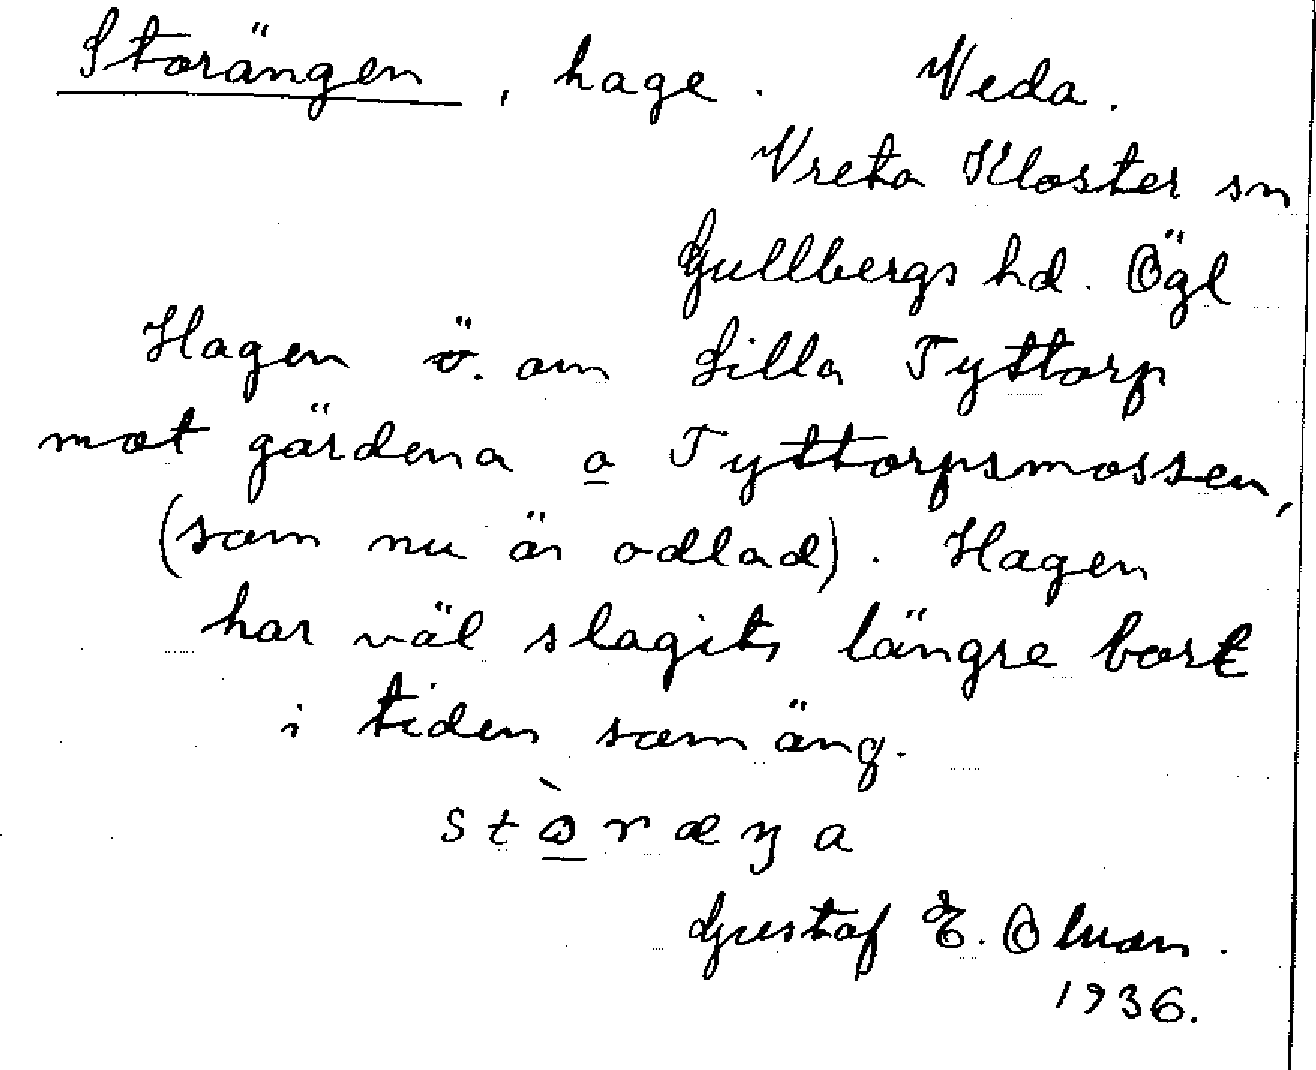 Storängen, hage. Veda.
Vreta Kloster sn
Gullbergs hd. Ögl
Hagen ö. om Lilla Tyttorp
mot gärdena o Tyttorpsmossen,
(som nu är odlad). Hagen
har väl slagits längre bort
i tiden som äng.
Gustaf E. Olman.
1936.